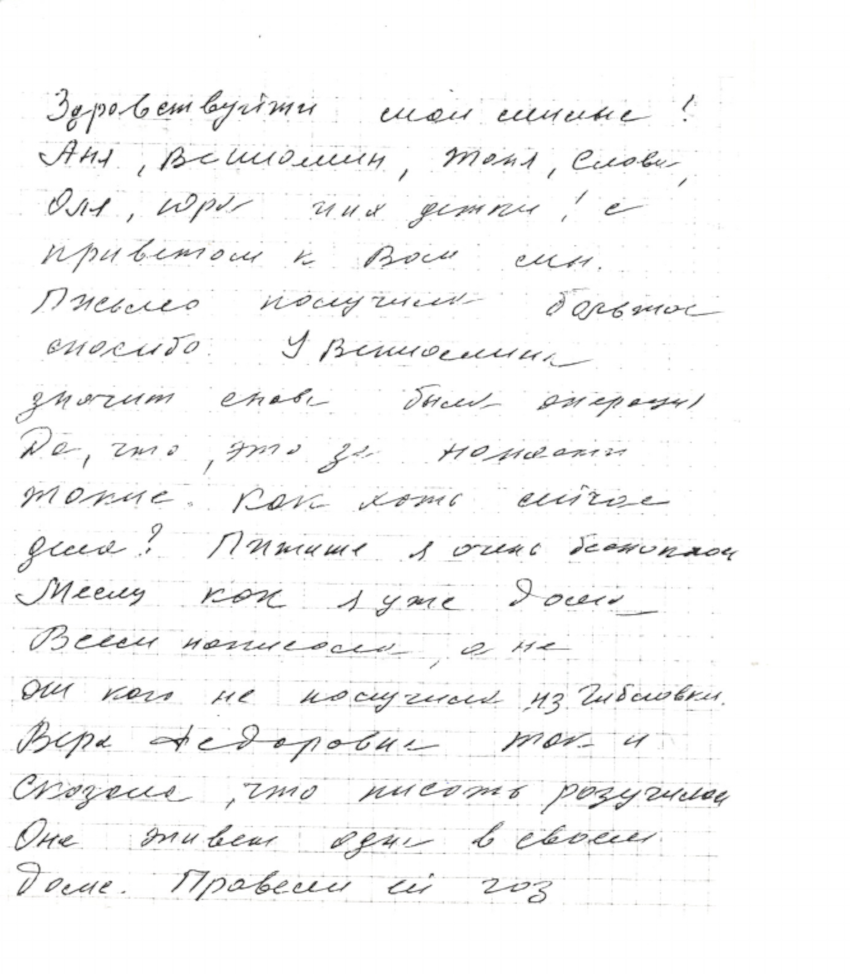 Здравствуйти мои милые!
Аня, Вениомин, Тоня, Слова,
Оля, Юра их детки! с
приветом к Вам мы.
Письмо получила большое
спасибо. У Вениомина
значит снова была операция
Да, что, это за напасти
такие. Как хоть сейчас
дела? Пишите я очень
Месяц как я уже дома
Всем написала, а не
от кого не получила из Гибловки.
Вера Федоровна так и
сказала, что писать разучилась
Она живет одна в своем
доме. Провели ей газ